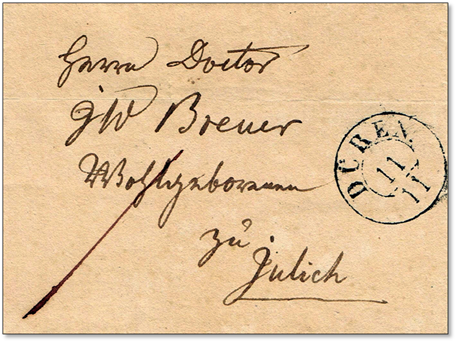 Herrn Doctor
JW Breuer
Wohlgeborenen
zu
Jülich
DÜREN
11
11